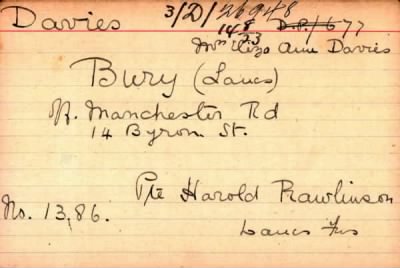 Davies 3/D/26948
14 8/23 D.P./677
Mrs Eliza Ann Davies
Bury (Lancs)
Manchester Rd
14 Byrom St.
Pte Harold Rawlinson
No. 13,86.
Lancs Fus